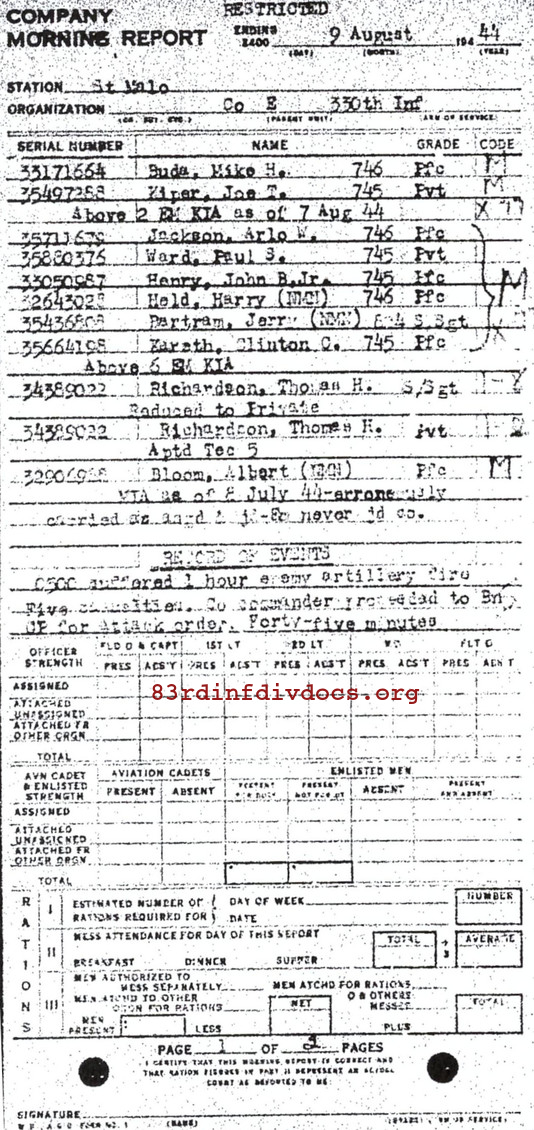 RESTRICTED
COMPANY
MORNING REPORT ENDING 2400 9 August 194 44
(DAY) (MONTH) (YEAR)
STATION St Malo
ORGANIZATION Co E 330th Inf
(PARENT UNIT) ARM OF SERVICE)
SERIAL NUMBER NAME GRADE CODE
33171664 Buda, Mike H. 746 Pfc M
35497288 Kiper, Joe T. 745 Pvt M
Above 2 EM KIA as of 7 Aug 44 X
Jackson, Arlo W. 746 Pfc
35880376 Ward, Paul S. 745 Pvt
33050987 Henry, John B.Jr. 745 Pfc M
32643028 Held, Harry (NMN) 746 Pfc
Bartram, Jerry (NMN) S Sgt
35664198 Karath, Clinton C. 745 Pfc X
Above 6 EM KIA
34389022 Richardson, Thomas H. S/Sgt
Reduced to Private
34389022 Richardson, Thomas H. Pvt
Aptd Tec 5
Bloom, Albert (NMN) Pfc M
MIA as of 8 July 44-erroneously
carried as never jd co.
RECORD OF EVENTS
0500 suffered 1 hour enemy artillery fire
Five casualties. Co commander proceeded to Bn
CP for attack order. Forty-five minutes
OFFICER STRENGTH FLD O & CAPT 1ST LT 2RD LT W O FLT O
PRES ABS'T PRES ABS'T PRES ABS'T PRES ABS'T PRES ABS'T
ASSIGNED
83rdinfdivdocs.org
ATTACHED
UNASSIGNED
ATTACHED FR
OTHER ORGN
TOTAL
AVN CADET & ENLISTED STRENGTH AVIATION CADETS ENLISTED MEN
PRESENT ABSENT PRESENT FOR DUTY PRESENT NOT FOR DUTY ABSENT PRESENT AND ABSENT
ASSIGNED
ATTACHED
UNASSIGNED
ATTACHED FR
OTHER ORGN
TOTAL
RATIONS
I ESTIMATED NUMBER OF DAY OF WEEK NUMBER
RATIONS REQUIRED FOR DATE
II MESS ATTENDANCE FOR DAY OF THIS REPORT TOTAL ÷ 3 AVERAGE
BREAKFAST DINNER SUPPER
III MEN AUTHORIZED TO MESS SEPARATELY MEN ATCHD FOR RATIONS
MEN ATCHD TO OTHER ORGN FOR RATIONS NET O & OTHERS MESSED TOTAL
MEN PRESENT LESS PLUS
PAGE 1 OF PAGES
I CERTIFY THAT THIS MORNING REPORT IS CORRECT AND
THAT RATION FIGURES IN PART II REPRESENT AN ACTUAL
COUNT AS REPORTED TO ME:
SIGNATURE
W. D., A. G. O. FORM NO. 1 (NAME) (GRADE) (ARM OR SERVICE)